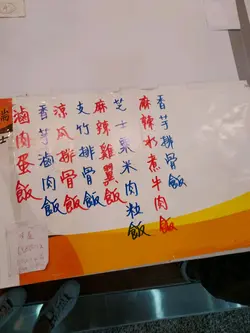 香芋排骨飯
麻辣水煮牛肉飯
芝士粟米肉粒飯
麻辣雞翼飯
支竹排骨飯
涼瓜排骨飯
香芋滷肉飯
滷肉蛋飯